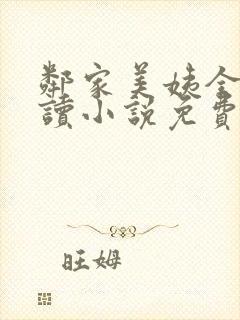 鄰家美姨全
讀小說免費
旺姆